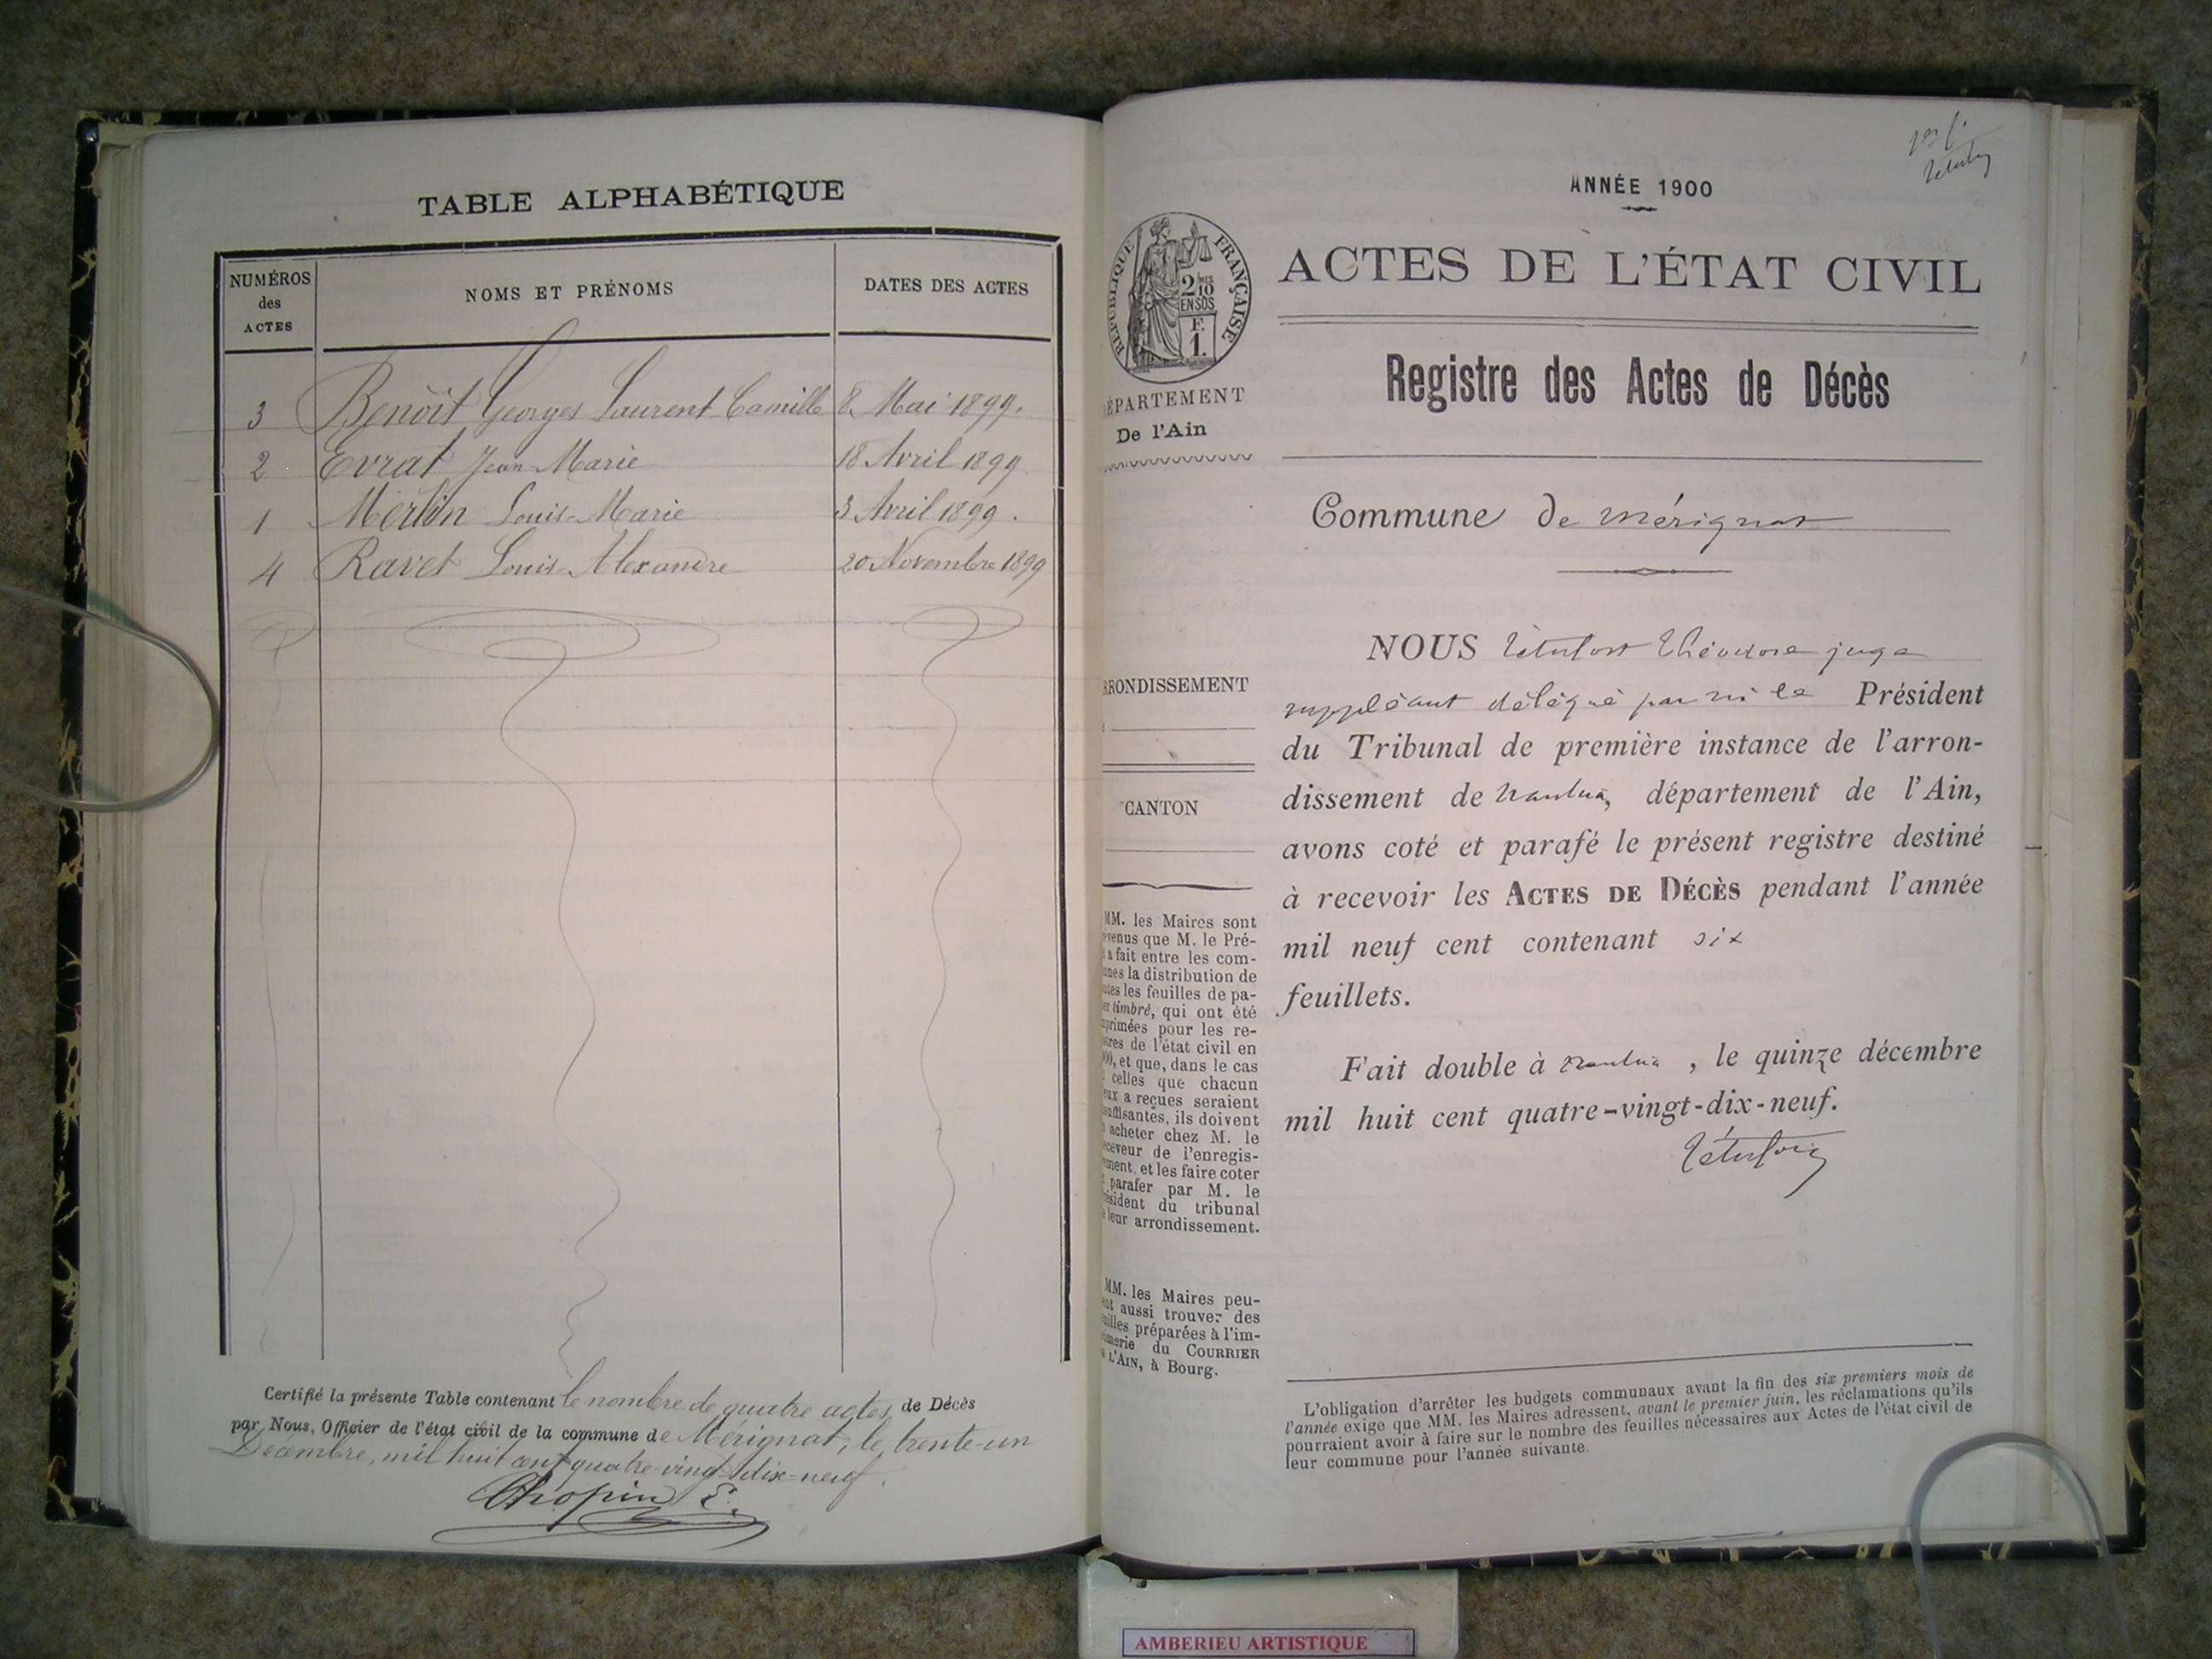 TABLE ALPHABÉTIQUE
NUMÉROS
des
ACTES
NOMS ET PRÉNOMS
DATES DES ACTES
3 Benoît Georges Laurent Camille 8 Mai 1899.
2 Evrat Jean-Marie 18 Avril 1899
1 Merlin Louis-Marie 3 Avril 1899.
4 Ravet Louis-Alexandre 20 Novembre 1899
Certifié la présente Table contenant le nombre de quatre actes de Décès
par Nous, Officier de l'état civil de la commune de Mérignat, le trente-un
Décembre, mil huit cent quatre-vingt-dix-neuf.
Chopin E.
ANNÉE 1900
RÉPUBLIQUE FRANÇAISE
2 10
EN SUS
F.
1.
ACTES DE L'ÉTAT CIVIL
Registre des Actes de Décès
ÉPARTEMENT
De l'Ain
Commune de Mérignat
RRONDISSEMENT
CANTON
NOUS Théodore juge
suppléant délégué par Mr le Président
du Tribunal de première instance de l'arron-
dissement de Nantua, département de l'Ain,
avons coté et parafé le présent registre destiné
à recevoir les ACTES DE DÉCÈS pendant l'année
mil neuf cent contenant six
feuillets.
Fait double à Nantua, le quinze décembre
mil huit cent quatre-vingt-dix-neuf.
MM. les Maires sont
evenus que M. le Pré-
t a fait entre les com-
unes la distribution de
utes les feuilles de pa-
er timbré, qui ont été
primées pour les re-
stres de l'état civil en
00, et que, dans le cas
celles que chacun
eux a reçues seraient
suffisantes, ils doivent
acheter chez M. le
eceveur de l'enregis-
ement, et les faire coter
parafer par M. le
résident du tribunal
e leur arrondissement.
MM. les Maires peu-
ent aussi trouver des
uilles préparées à l'im-
rimerie du COURRIER
L'AIN, à Bourg.
L'obligation d'arrêter les budgets communaux avant la fin des six premiers mois de
l'année exige que MM. les Maires adressent, avant le premier juin, les réclamations qu'ils
pourraient avoir à faire sur le nombre des feuilles nécessaires aux Actes de l'état civil de
leur commune pour l'année suivante.
AMBERIEU ARTISTIQUE